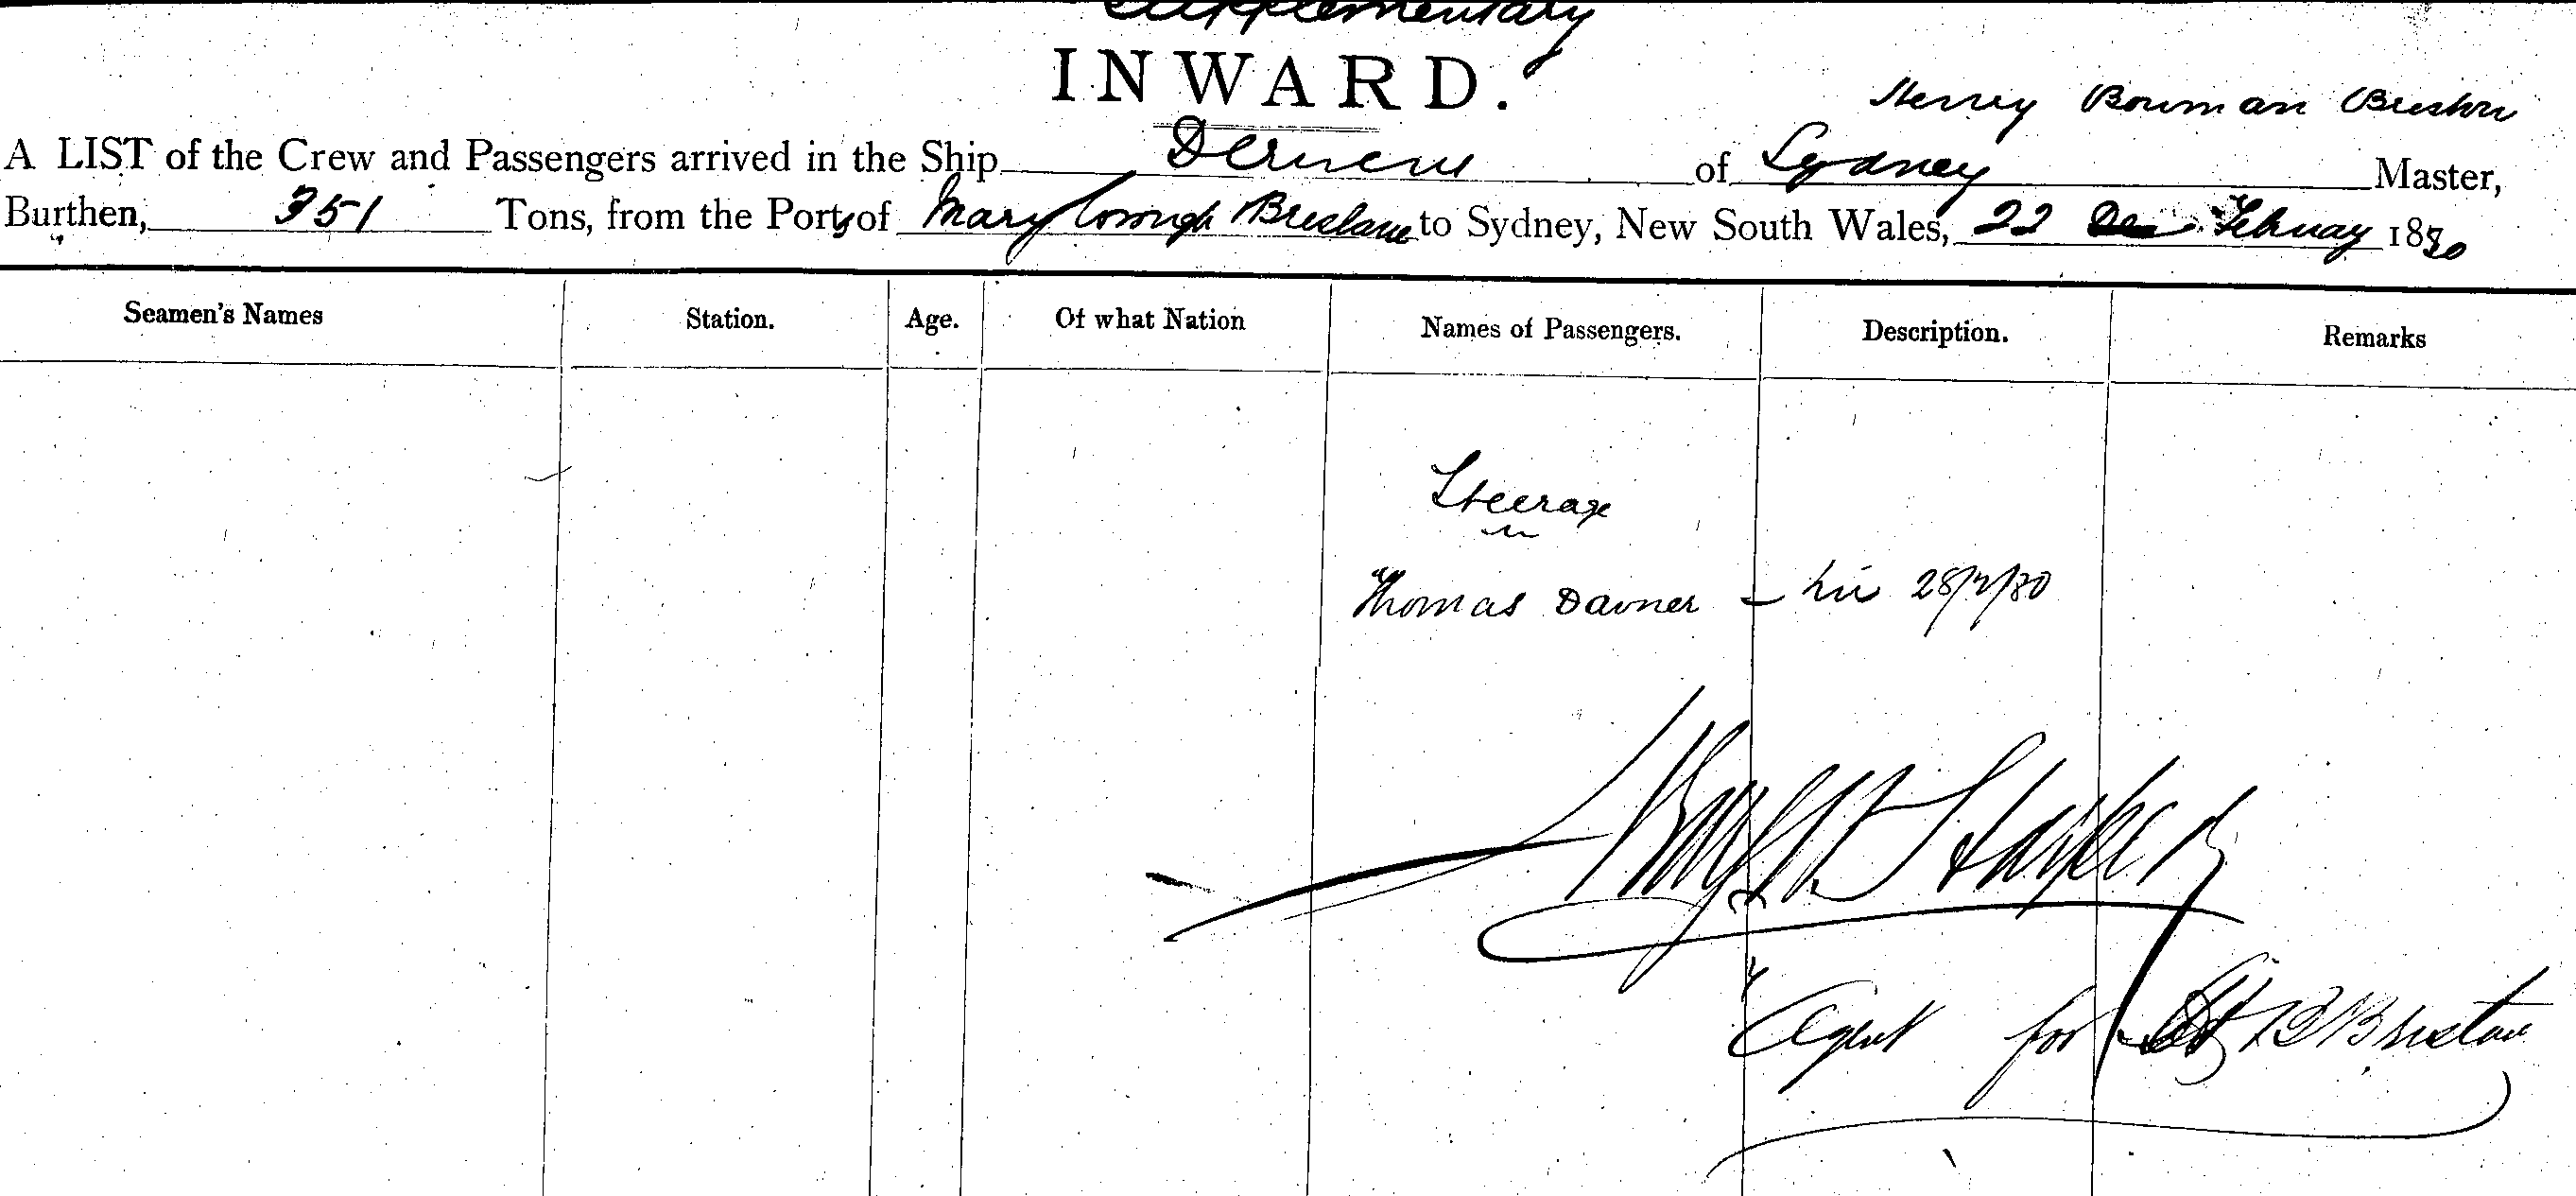 Supplementary
INWARD.
Henry Bowman Bristow
A LIST of the Crew and Passengers arrived in the Ship Derwent of Sydney Master,
Burthen, 351 Tons, from the Ports of Maryborough Brisbane to Sydney, New South Wales, 22 February 1880
Seamen's Names Station. Age. Of what Nation Names of Passengers. Description. Remarks
Steerage
Thomas Davner 28/2/80
Agent for H B Bristow